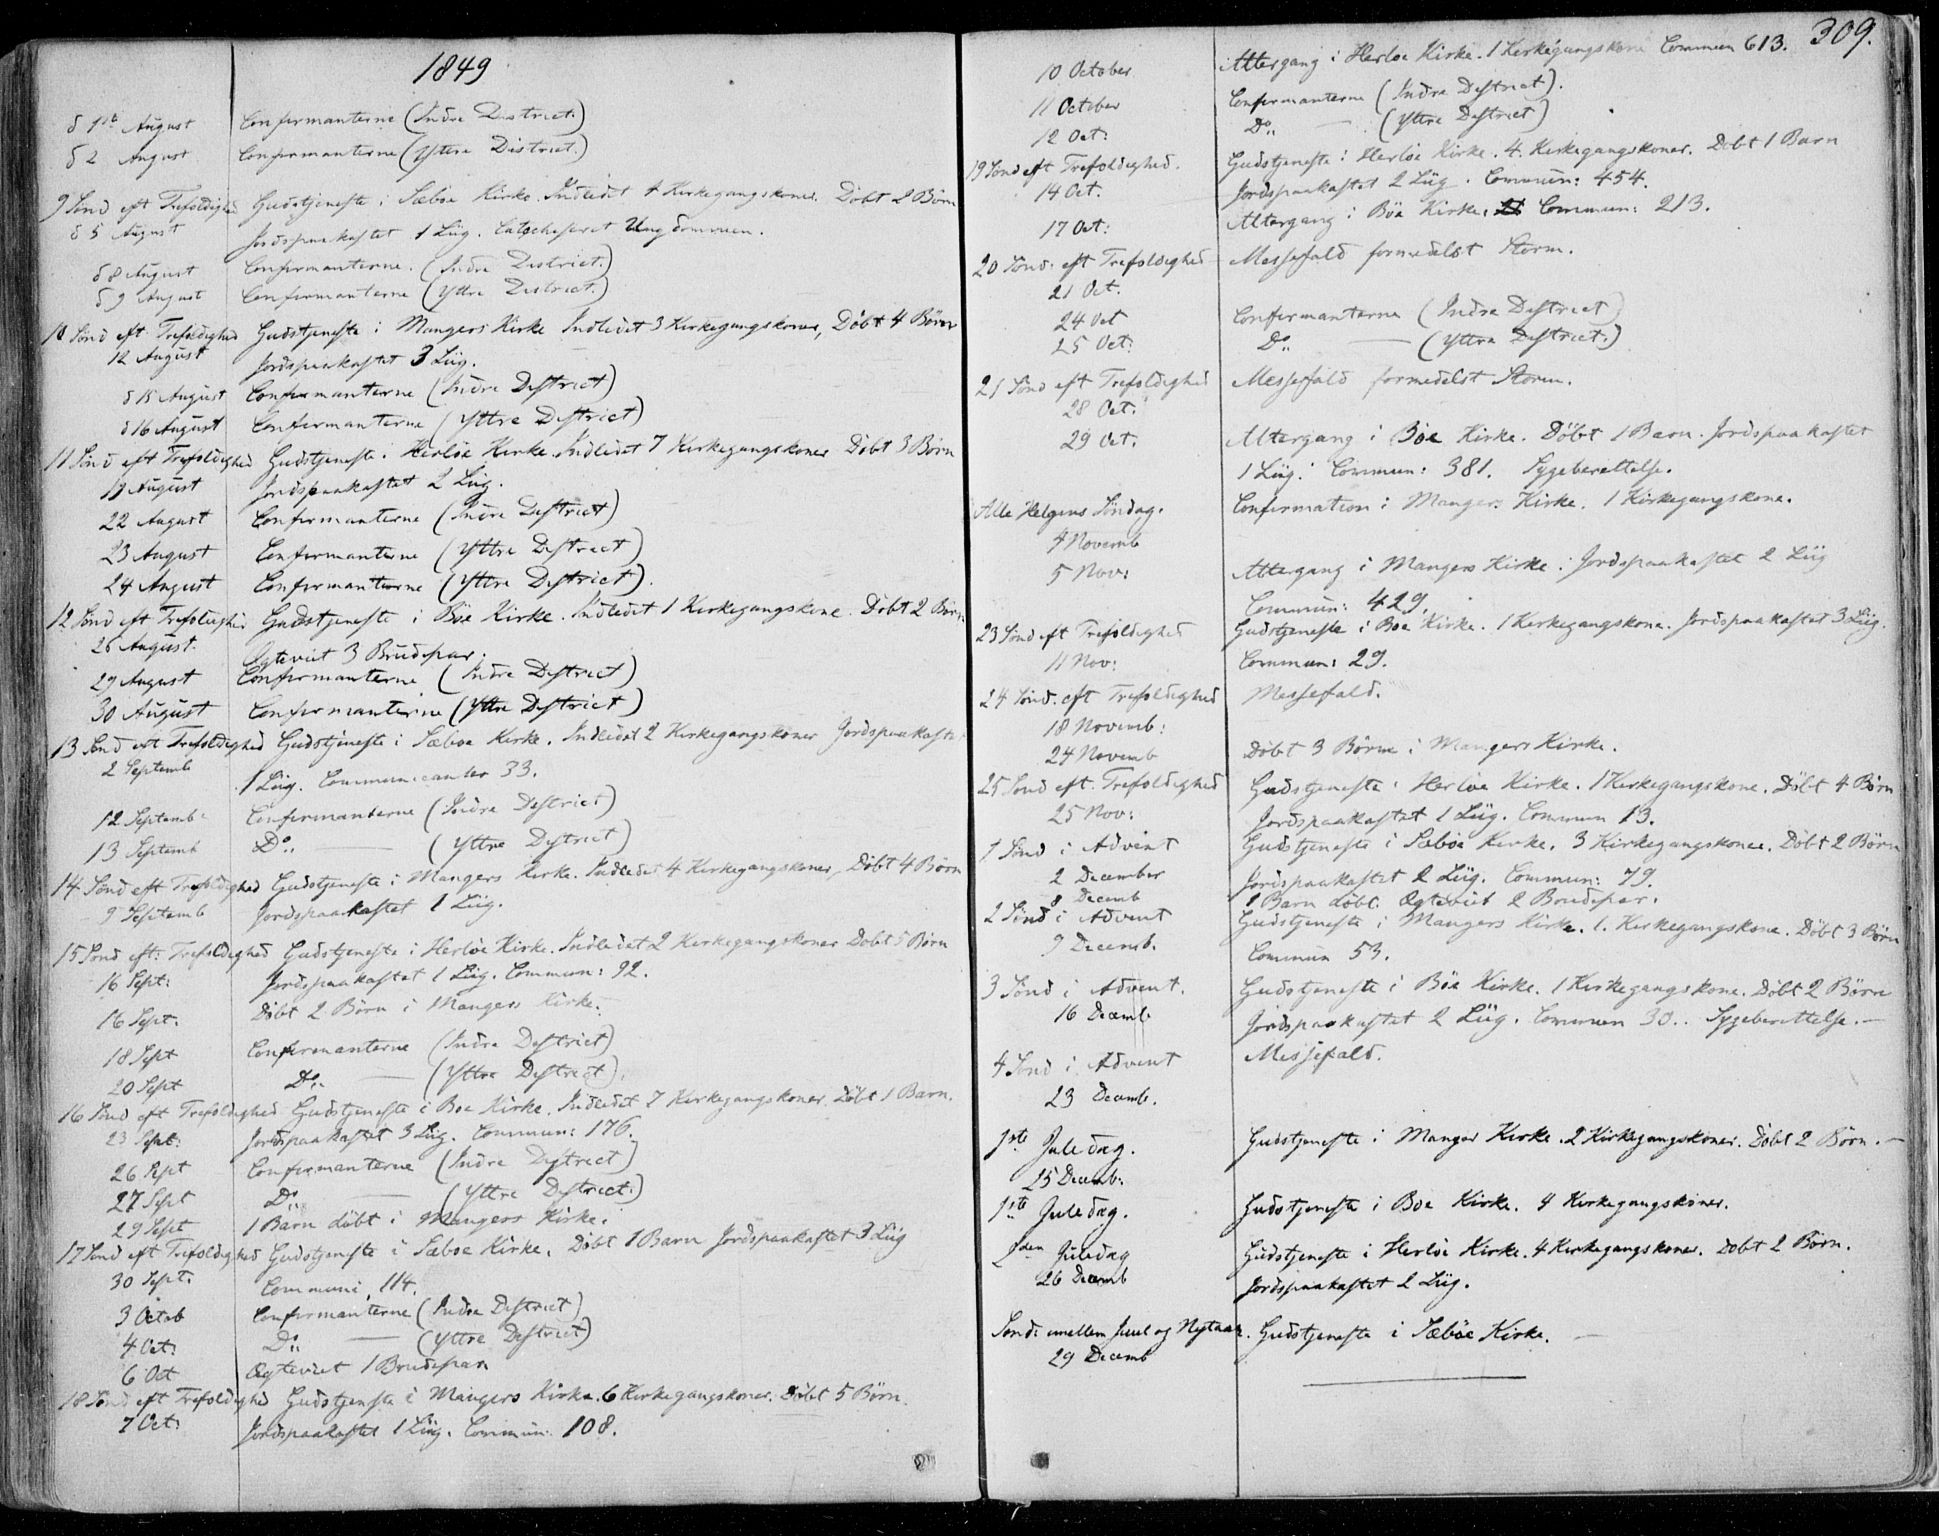 1849
d 1ste August Confirmanterne (Indre District.)
d 2 August Confirmanterne (Yttre District.)
9 Sønd eft Trefoldighed Gudstjeneste i Sæboe Kirke. Indledet 4 Kirkegangskoner. Døbt 2 Børn
d 5 August Jordspaakastet 1 Liig. Catecheseret Ungdommen.
d 8 August Confirmanterne. (Indre District.)
d 9 August Confirmanterne (Yttre District.)
10 Sønd eft Trefoldighed Gudstjeneste i Mangers Kirke Indledet 3 Kirkegangskoner, Døbt 4 Børn
12 August Jordspaakastet 3 Liig.
d 15 August Confirmanterne (Indre District)
d 16 August Confirmanterne (Yttre District)
11 Sønd eft Trefoldighed Gudstjeneste i Herløe Kirke. Indledet 7 Kirkegangskoner Døbt 3 Børn
19 August Jordspaakastet 2 Liig.
22 August Confirmanterne (Indre District)
23 August Confirmanterne (Yttre District)
24 August Confirmanterne (Yttre District).
12 Sønd eft Trefoldighed Gudstjeneste i Bøe Kirke. Indledet 1 Kirkegangskone. Døbt 2 Børn
26 August. Egteviet 3 Brudepar.
29 August Confirmanterne (Indre District)
30 August Confirmanterne (Yttre District)
13 Sønd eft Trefoldighed Gudstjeneste i Sæboe Kirke. Indledet 2 Kirkegangskoner Jordspaakastet
2 Septemb 1 Liig. Communicanter 33.
12 Septemb: Confirmanterne (Indre District)
13 Septemb Do: — (Yttre District)
14 Sønd eft Trefoldighed Gudstjeneste i Mangers Kirke. Indledet 4 Kirkegangskoner, Døbt 4 Børn
9 Septemb Jordspaakastet 1 Liig.
15 Sønd eft: Trefoldighed Gudstjeneste i Herløe Kirke. Indledet 2 Kirkegangskoner Døbt 5 Børn
16 Sept: Jordspaakastet 1 Liig. Commun: 92.
16 Sept. Døbt 2 Børn i Mangers Kirke.
18 Sept Confirmanterne (Indre District)
20 Sept Do: — (Yttre District).
16 Sønd eft Trefoldighed Gudstjeneste i Boe Kirke. Indledet 7 Kirkegangskoner. Døbt 1 Barn.
23 Sept: Jordspaakastet 3 Liig. Commun: 176.
26 Sept Confirmanterne (Indre District)
27 Sept Do: — (Yttre District.)
29 Sept 1 Barn døbt i Mangers Kirke.
17 Sønd eft Trefoldighed Gudstjeneste i Sæboe Kirke. Døbt 1 Barn Jordspaakastet 3 Liig
30 Sept. Communi. 114.
3 Octob Confirmanterne (Indre District)
4 Oct: Do: — (Yttre District)
6 Oct Egteviet 1 Brudepar
18 Sønd eft Trefoldighed Gudstjeneste i Mangers Kirke. 6 Kirkegangskoner. Døbt 5 Børn.
7 Oct: Jordspaakastet 1 Liig. Commun: 108.
309.
10 October Altergang i Herloe Kirke. 1 Kirkegangskone Commun 613.
11 October Confirmanterne (Indre District).
12 Oct: Do: — (Yttre District)
19 Sønd eft Trefoldighed. Gudstjeneste i Herløe Kirke. 4. Kirkegangskoner. Døbt 1 Barn
14 Oct. Jordspaakastet 2 Liig. Commun: 454.
17 Oct: Altergang i Böe Kirke. Commun: 213.
20 Sønd: eft Trefoldighed Messefald formedelst Storm.
21 Oct.
24 Oct Confirmanterne (Indre District)
25 Oct: Do: — (Yttre District.)
21 Sønd eft Trefoldighed Messefald formedelst Storm.
28 Oct.
29 Oct. Altergang i Bøe Kirke. Døbt 1 Barn. Jordspaakastet
1 Liig. Commun: 381. Sygeberettelse.
Alle Helgens Søndag. Confirmation i Mangers Kirke. 1 Kirkegangskone.
4 Novemb
5 Nov: Altergang i Mangers Kirke. Jordspaakastet 2 Liig
Commun: 429.
23 Sønd eft Trefoldighed Gudstjeneste i Boe Kirke. 1 Kirkegangskone. Jordspaakastet 3 Liig.
11 Nov: Commun: 29.
24 Sønd. eft Trefoldighed Messefald.
18 Novemb:
24 Novemb Døbt 3 Børn i Mangers Kirke.
25 Sønd eft. Trefoldighed Gudstjeneste i Herløe Kirke. 1 Kirkegangskone. Døbt 4 Børn
25 Nov: Jordspaakastet 1 Liig. Commun 13.
1 Sønd i Advent Gudstjeneste i Sæbøe Kirke. 3 Kirkegangskoner. Døbt 2 Børn
2 December Jordspaakastet 2 Liig. Commun: 79.
8 Decemb 1 Barn døbt. Egteviet 2 Brudepar.
2 Sønd i Advent Gudstjeneste i Mangers Kirke. 1. Kirkegangskone. Døbt 3 Børn
9 Decemb. Commun 53.
3 Sønd i Advent. Gudstjeneste i Bøe Kirke. 1 Kirkegangskone. Døbt 2 Børn
16 Decemb Jordspaakastet 2 Liig. Commun 30.. Sygeberettelse. —
4 Sønd i Advent Messefald.
23 Decemb.
1ste Juledag. Gudstjeneste i Manger Kirke. 2 Kirkegangskoner. Døbt 2 Børn. —
25 Decemb:
1ste Juledag. Gudstjeneste i Boe Kirke. 4 Kirkegangskoner.
2den Juledag Gudstjeneste i Herløe Kirke. 4 Kirkegangskoner. Døbt 2 Børn.
26 Decemb Jordspaakastet 2 Liig.
Sønd: imellem Juul og Nytaar. Gudstjeneste i Sæbøe Kirke. —
29 Decemb